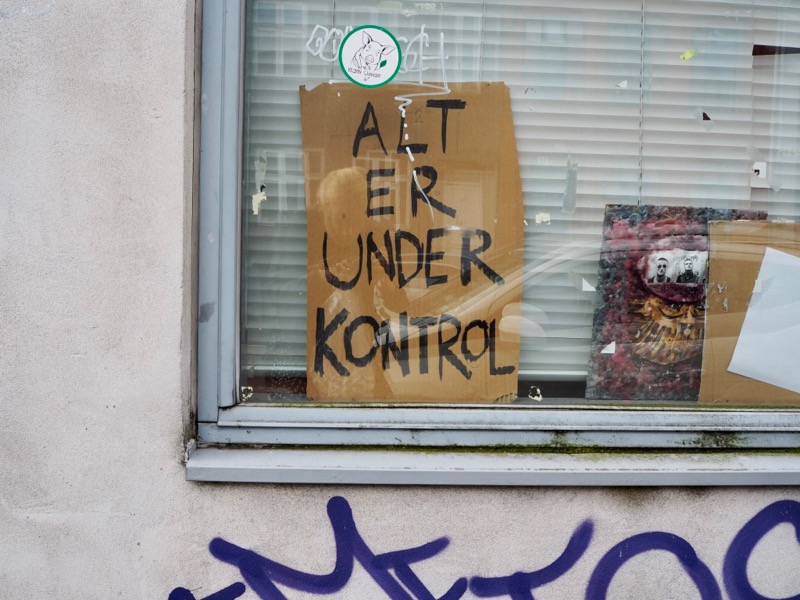 ALT
ER
UNDER
KONTROL